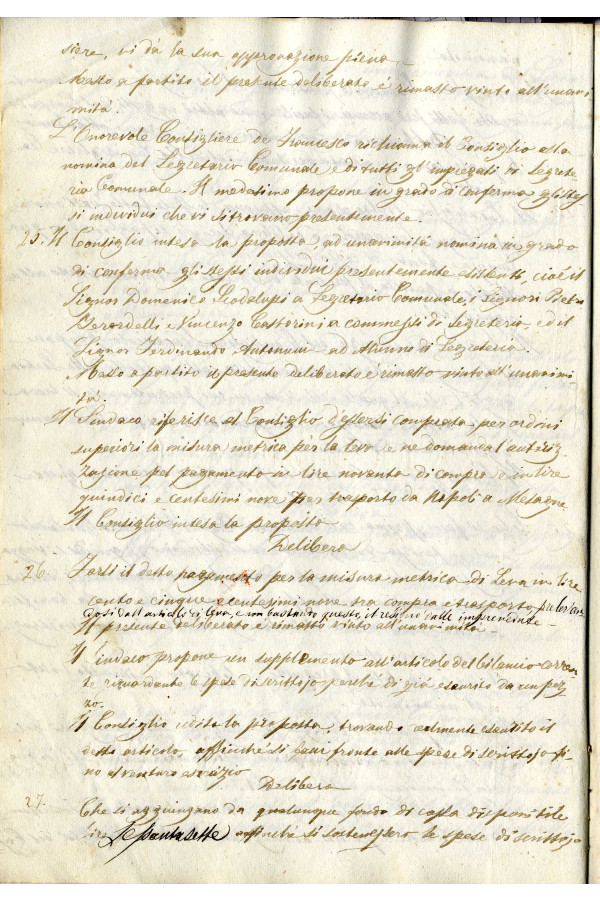 siere, vi dà la sua approvazione piena.
Messo a partito il presente deliberato è rimasto vinto all'unani
mità.
L'Onorevole Consigliere de Francesco richiama il Consiglio alla
nomina del Segretario Comunale e di tutti gl'impiegati di Segrete
ria Comunale. Il medesimo propone in grado di conferma gli stes
si individui che vi si trovano presentemente.
25. Il Consiglio intesa la proposta, ad unanimità nomina in grado
di conferma gli stessi individui presentemente esistenti, cioè il
Signor Domenico a Segretario Comunale, i Signori Pietro
Berardelli e Vincenzo Castorini a commessi di Segreteria, ed il
Signor Ferdinando Antonuci ad Alunno di Segreteria.
Messo a partito il presente deliberato è rimasto vinto all'unanimi
tà.
Il Sindaco riferisce al Consiglio d'essersi comprata per ordini
superiori la misura metrica per la leva e ne domanda l'autoriz
zazione pel pagamento in lire novanta di compra e in lire
quindici e centesimi nove per trasporto da Napoli a Mesagne
Il Consiglio intesa la proposta
Delibera
26. Farsi il detto pagamento per la misura metrica di Leva in lire
cento e cinque e centesimi nove tra compra e trasporto
dosi dall'articolo di Leva, e non bastando questo, il resto dalle impreviste
Il presente deliberato è rimasto vinto all'unanimità
Il Sindaco propone un supplemento all'articolo del bilancio corren
te riguardante le spese di scrittojo perché di già esaurito da un pez
zo.
Il Consiglio udita la proposta, trovando realmente esaurito il
detto articolo, affinché si faccia fronte alle spese di scrittojo fi
no al venturo esercizio
Delibera
27. Che si aggiungano da qualunque fondo di cassa disponibile
lire Sessantasette affinché si sostenessero le spese di scrittojo